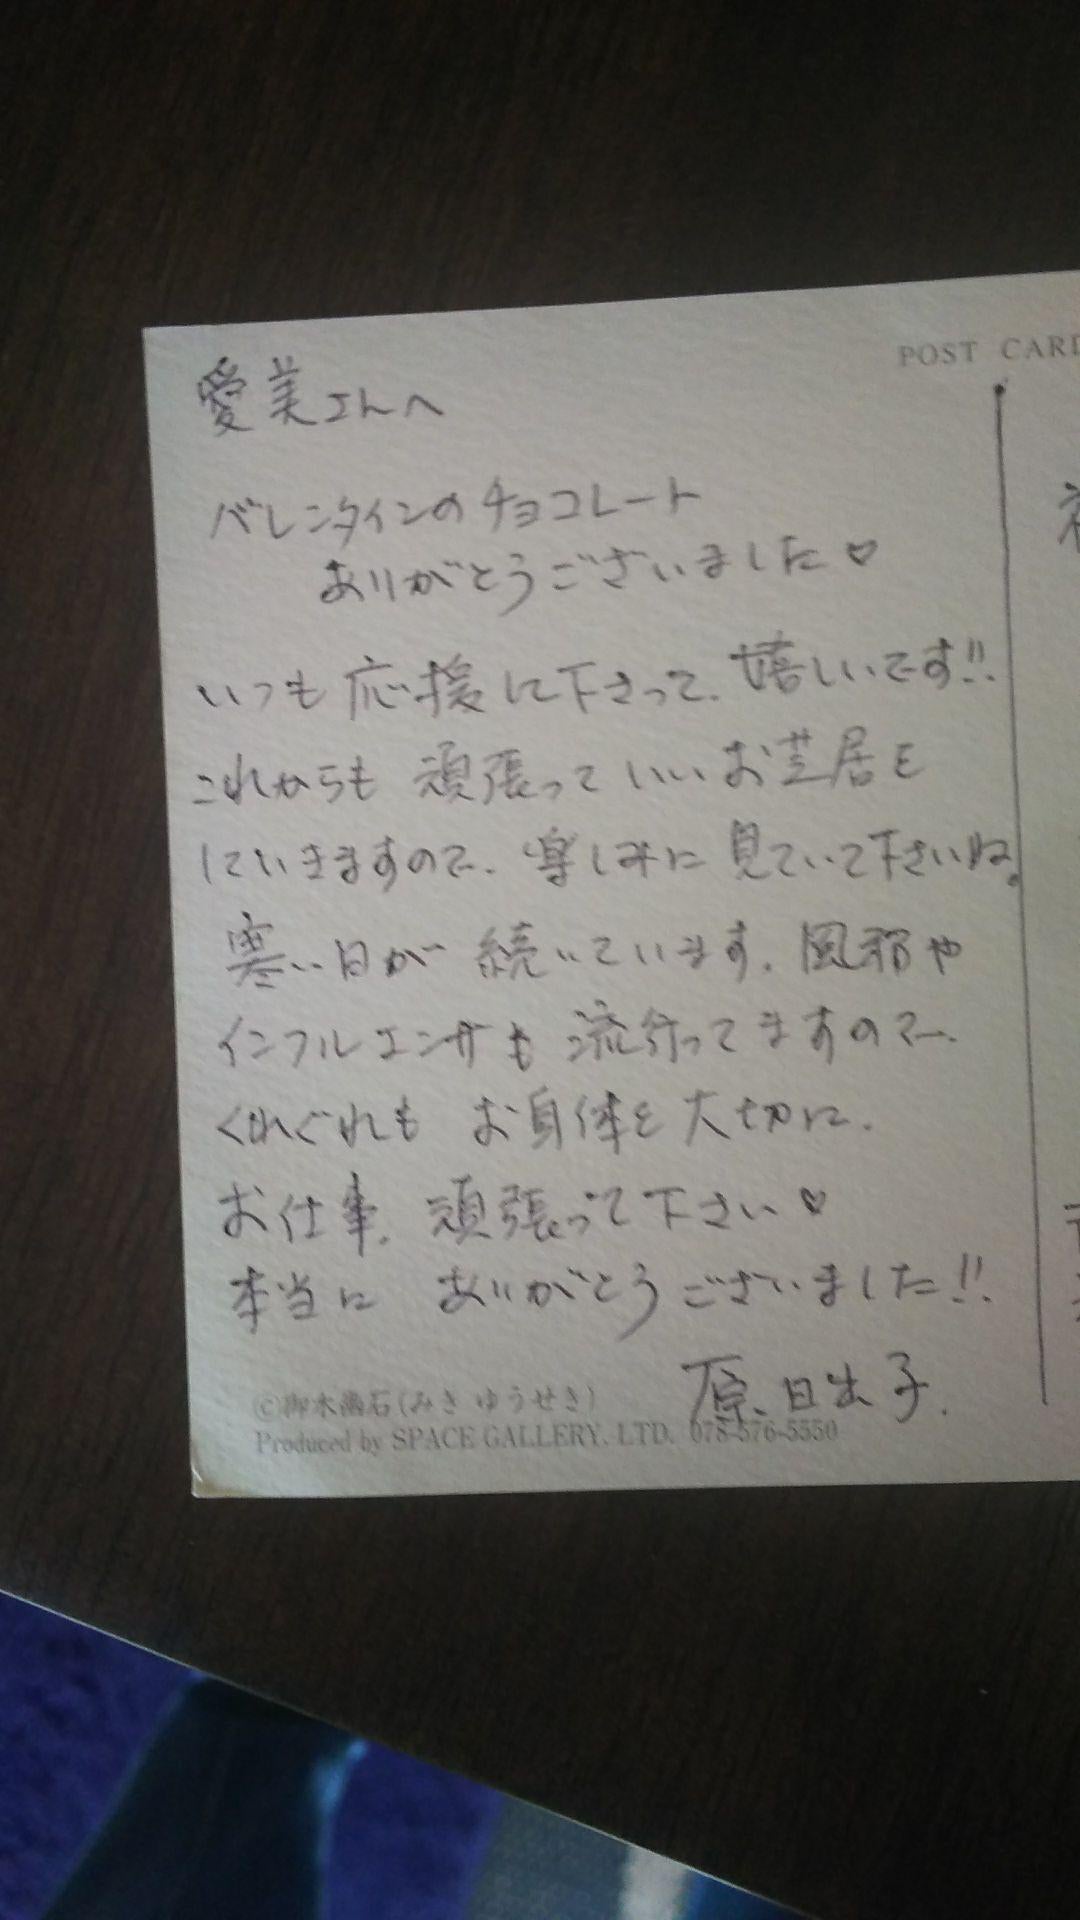 POST CARD
愛美さんへ
バレンタインのチョコレート
ありがとうございました♡
いつも応援して下さって、嬉しいです!!
これからも頑張っていいお芝居を
していきますので、楽しみに見ていて下さいね。
寒い日が続いています。風邪や
インフルエンザも流行ってますので、
くれぐれもお身体を大切に。
お仕事、頑張って下さい♡
本当にありがとうございました!!
原 日出子.
©御木幽石(みき ゆうせき)
Produced by SPACE GALLERY. LTD. 078-576-5550